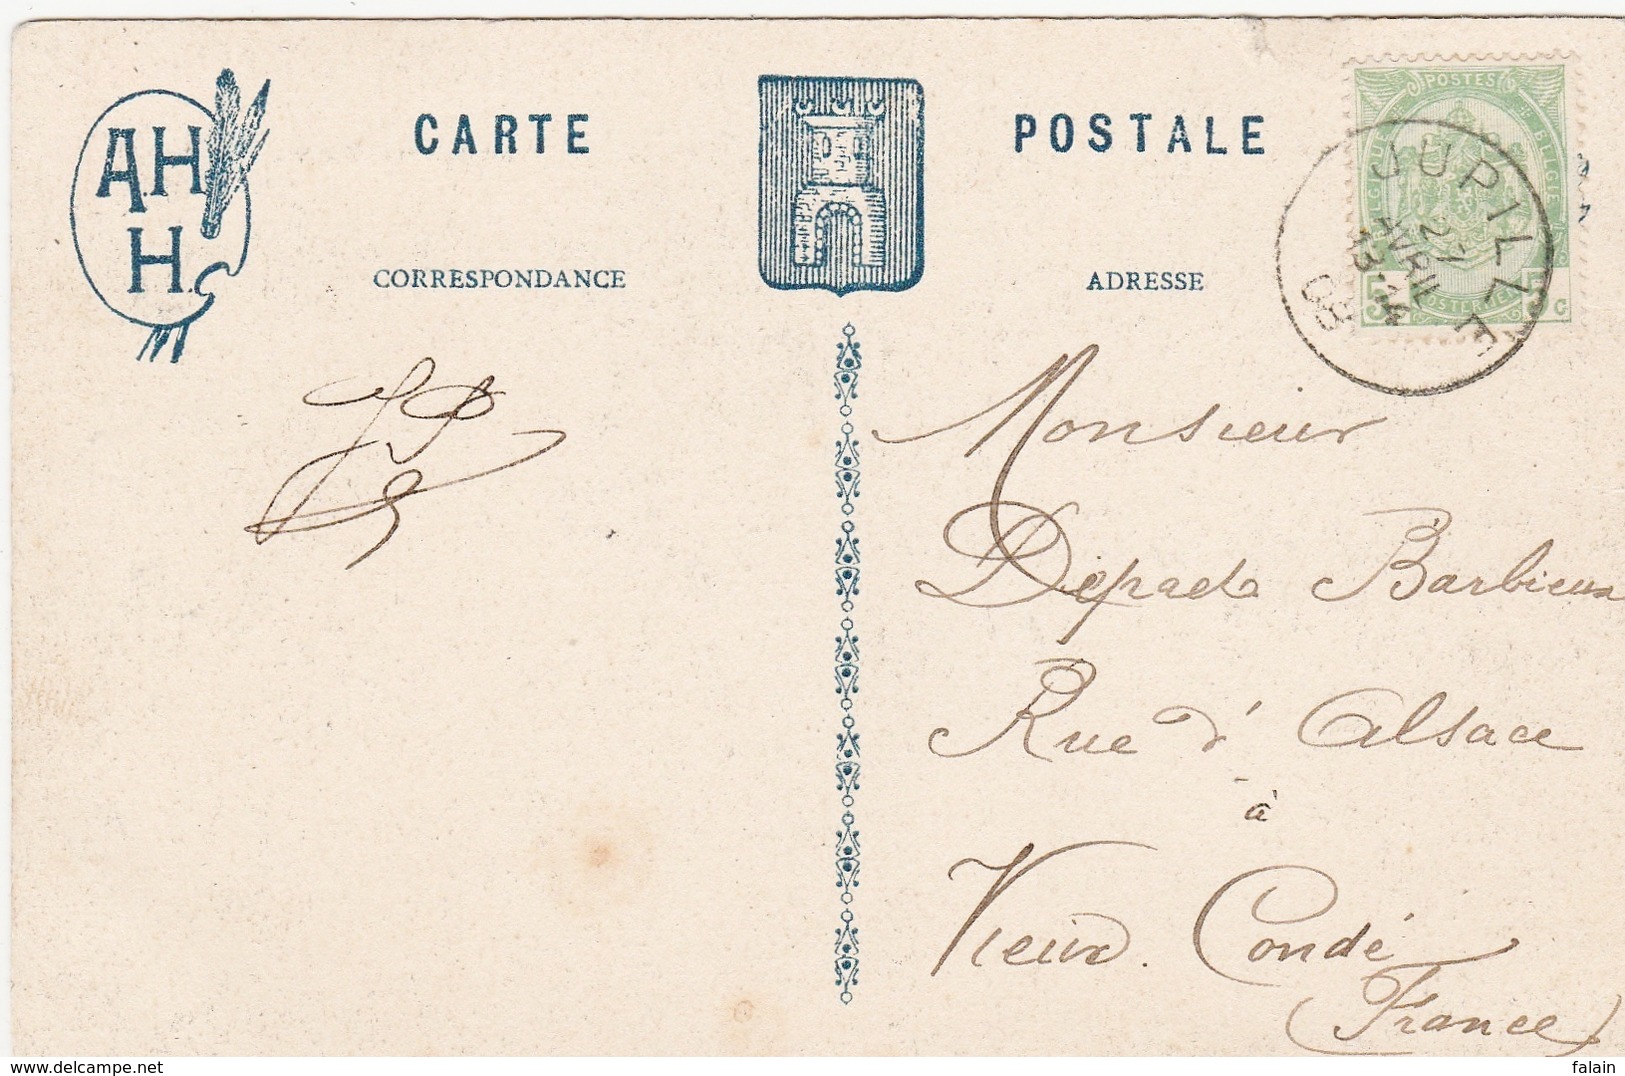 A.H
H.
CARTE
POSTALE
CORRESPONDANCE
ADRESSE
POSTES
BELGIE
5
5 C
JUPILLE
27
AVRIL
13-14
08
Monsieur
Barbieux
Rue d'Alsace
à
Vieux. Condé
(France)
delcampe.net
falain